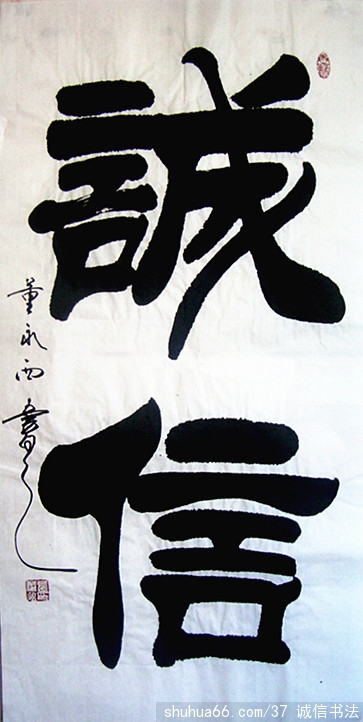 誠信
董永西書
shuhua66.com/37 诚信书法